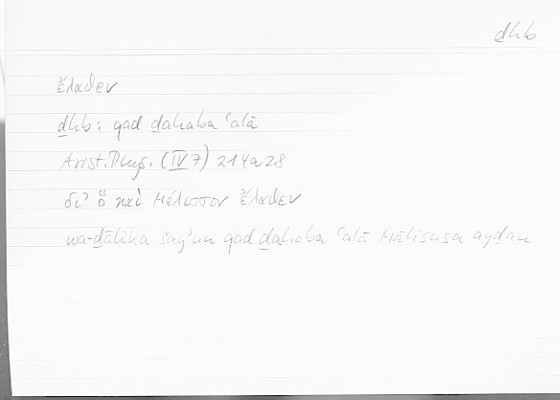 ḏhb
ἔλαθεν
ḏhb: qad ḏahaba ʿalā
Arist. Phys. (IV 7) 214a28
δι' ὃ καὶ Μέλισσον ἔλαθεν
wa-ḏālika šayʾun qad ḏahaba ʿalā Mālisusa ayḍan